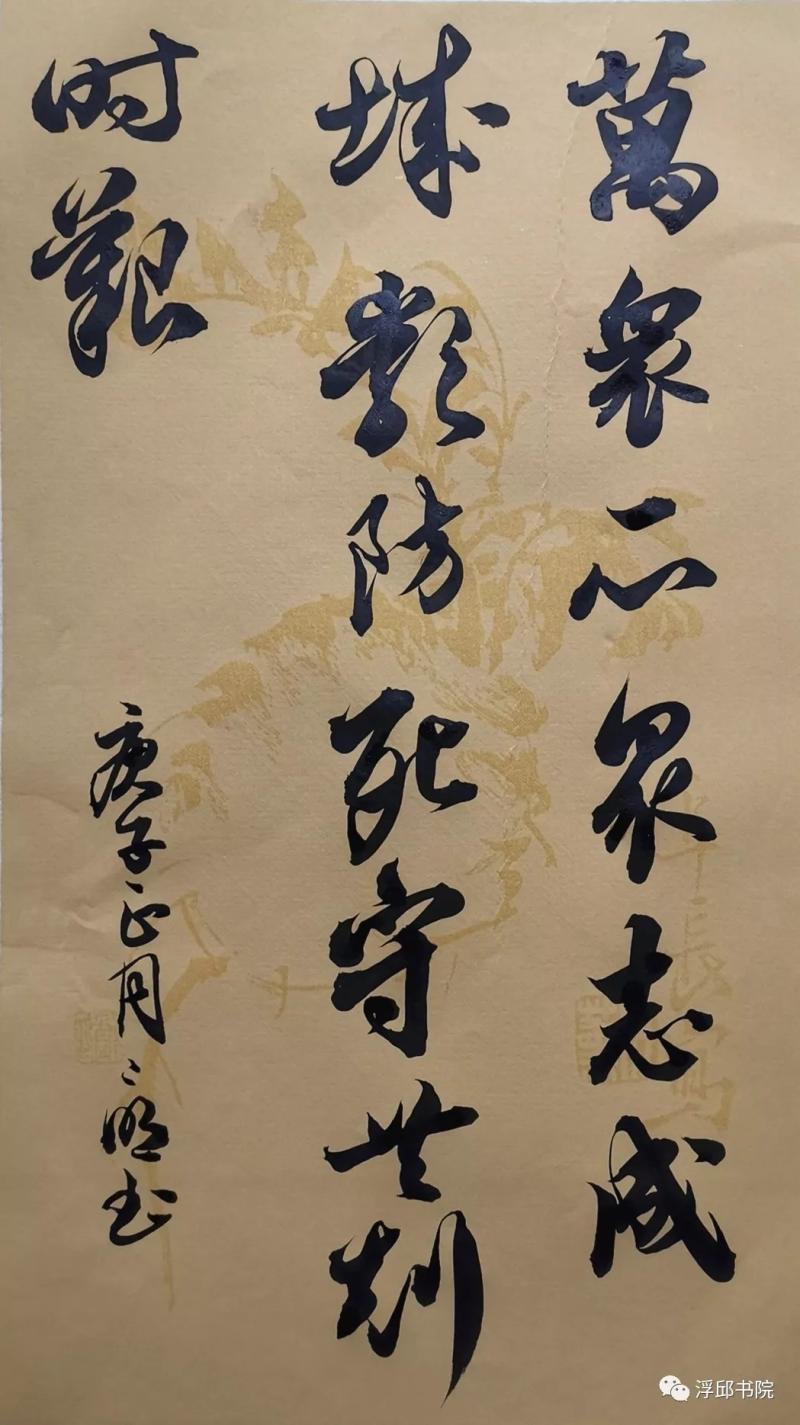 萬衆一心衆志成
城嚴防死守共剋
时艱
庚子正月
浮邱书院